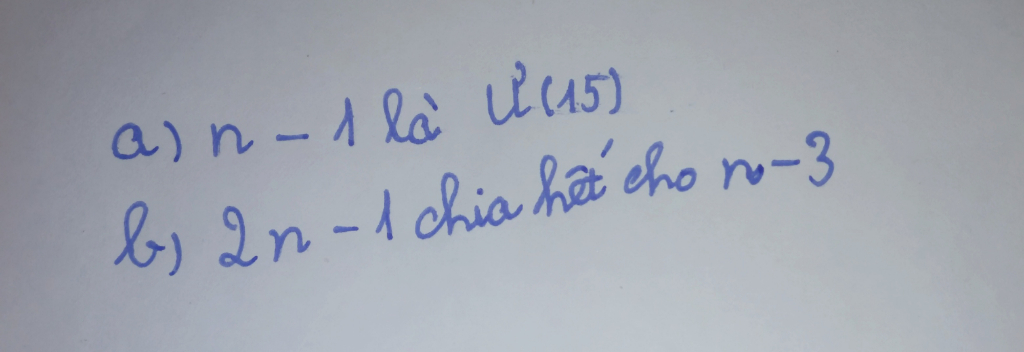 a) n - 1 là Ư(15)
b) 2n - 1 chia hết cho n - 3